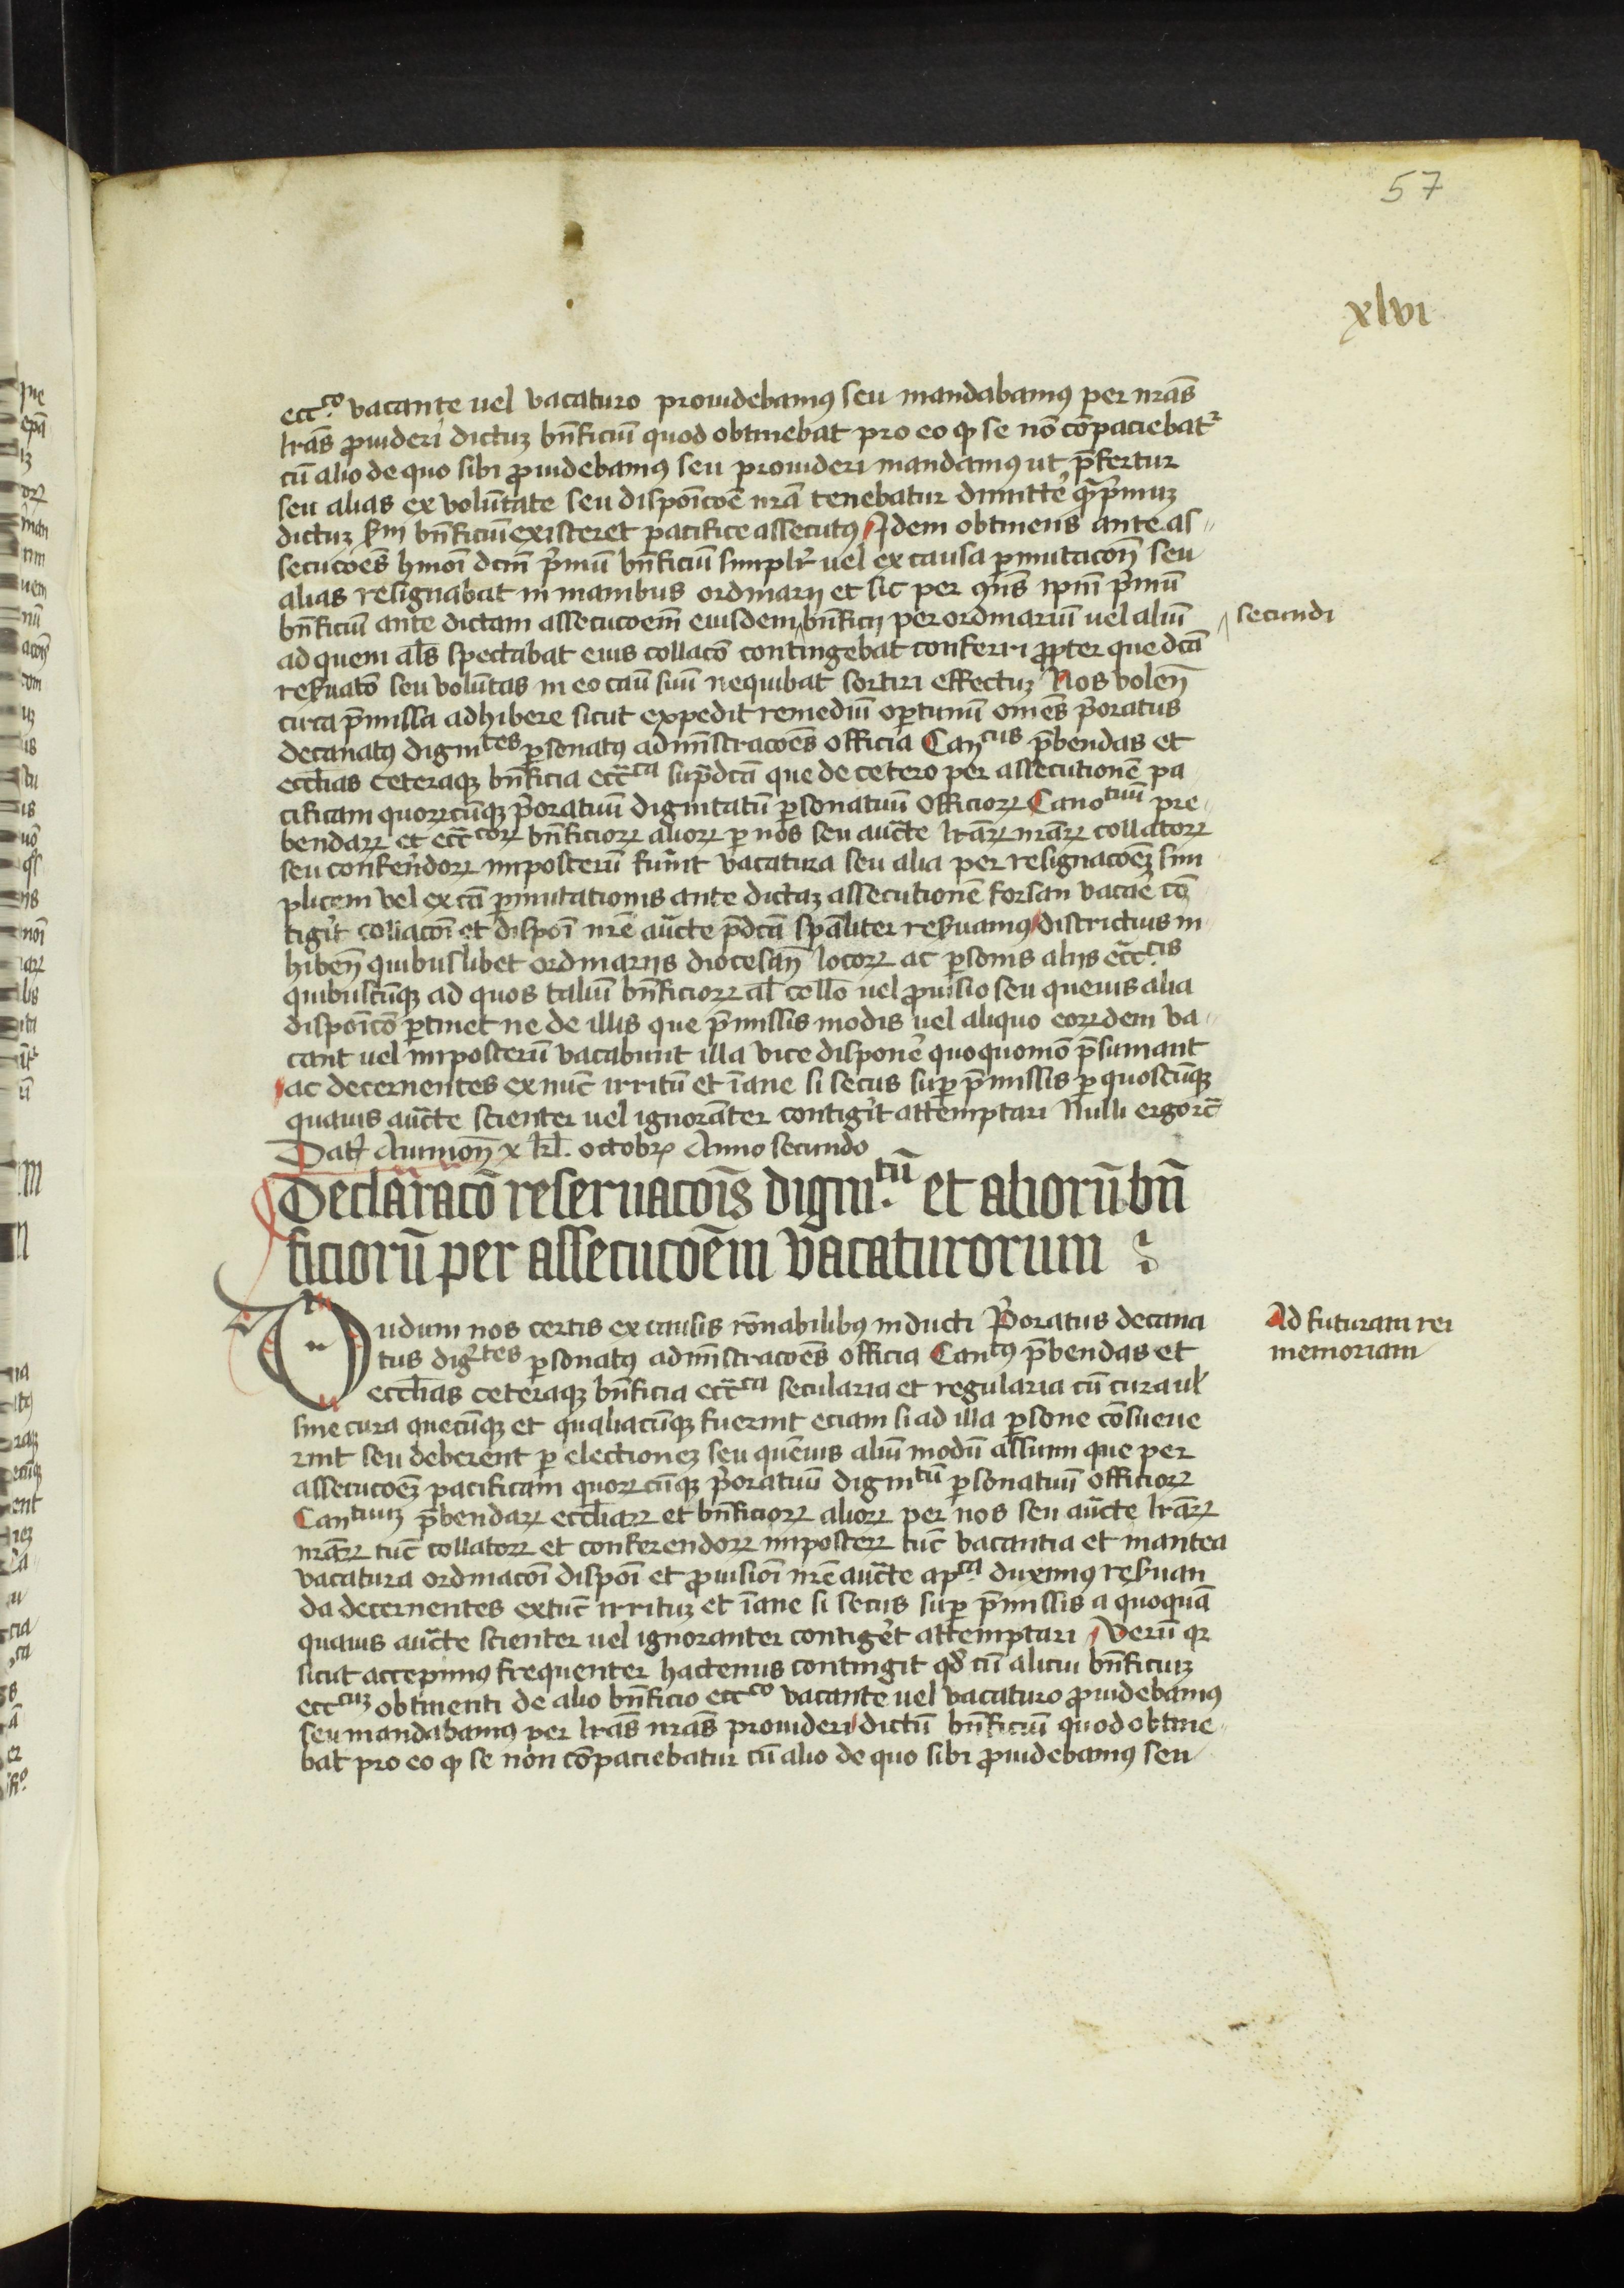 57
xlvi
ecc.co vacante uel vacaturo prouidebamꝰ seu mandabamꝰ per nr̄as
lr̄as ꝓuideri dictuꝫ bn̄ficiū quod obtinebat pro eo ꝙ se nō cōpaciebatr
cū alio de quo sibi ꝓuidebamꝰ seu prouideri mandamꝰ ut p̄fertur
seu alias ex volūtate seu disponīcoē nrā tenebatur dimitte᷑ ꝙ͛pͥmuꝫ
dictuꝫ sm̄ bn̄ficiū existeret pacifice assecutꝰ Idem obtinens ante as-
secucoēs hmōi dcm̄ pͥmū bn̄ficiū simplr᷑ uel ex causa ꝑmutacōn̄ seu
alias resignabat in manibus ordinarij et sic per ꝯn̄s ip̄m pͥmū
bn̄ficiū ante dictam assecucoēm eiusdem bn̄ficij per ordinariū uel aliū
secundi
ad quem al̄s spectabat eius collacō contingebat conferri ꝓpter que dcā
reẜuatō seu volūtas in eo cāu suū nequibat sortiri effectuꝫ Nos volen̄
circa p̄missa adhibere sicut expedit remediū oꝑtunū omēs pͥoratus
decanatꝰ dignites ꝑsonatꝰ admīstracoēs officia Cancus p̄bendas et
eccl̄ias ceteraqꝫ bn̄ficia ecc̄ca sup̄dcā que de cetero per assecutionē pa
cificam quoꝝcūqꝫ pͥoratuū dignitatū ꝑsonatuū officioꝝ Canotuū pre-
bendaꝝ et ecc̄coꝝ bn̄ficioꝝ alioꝝ ꝑ nos seu auc̄te lr̄aꝝ nr̄aꝝ collatoꝝ
seu conferēdoꝝ inposterū fuīnt vacatura seu alia per resignacoēꝫ sim
plicem vel ex cā ꝑmutationis ante dictaꝫ assecutionē forsan vacar᷑e cō
tigīt collacōi et disponī nr̄e auc̄te p̄dcā spāliter reẜuamꝰ districtius in
hiben̄ quibuslibet ordinarijs diocesan̄ locoꝝ ac ꝑsonis alijs ecc̄cis
quibuscūqꝫ ad quos taliū bn̄ficioꝝ al̄ coll̄o uel ꝓuisio seu queuis alia
disponīcō ꝑtinet ne de illis que p̄missis modis uel aliquo eoꝝdem va-
cant uel inposterū vacabunt illa vice disponer᷑e quoquomō p̄sumant
ac decernentes ex nūc irritū et īane si secus suꝑ p̄missis ꝑ quoscūqꝫ
quauis auc̄te scienter uel ignorāter contigīt attemptari Nulli ergo rc̄
Datꝭ Auinion̄ x kl̄. octobrꝭ Anno secundo
Declaracō reseruacōis digni.tū et aliorū bn̄
ficiorū per assecucoēm vacaturorum
Dudum nos certis ex causis rōnabilibꝰ inducti Pͥoratus decana
Ad futuram rei
memoriam
tus digͣtes ꝑsonatꝰ admīstracoēs officia Cantꝰ p̄bendas et
eccl̄ias ceteraqꝫ bn̄ficia ecc̄ca secularia et regularia cū cura ul̄
sine cura quecūqꝫ et qualiacūqꝫ fuerint eciam si ad illa ꝑsone cōsueue
rint seu deberent ꝑ electioneꝫ seu quēuis aliū modū assumi que per
assecucoēꝫ pacificam quoꝝcūqꝫ pͥoratuū dignitū ꝑsonatuū officioꝝ
Cantuuꝫ p̄bendaꝝ eccl̄iaꝝ et bn̄ficioꝝ alioꝝ per nos seu auc̄te lr̄aꝝ
nr̄aꝝ tūc collatoꝝ et conferendoꝝ inposterꝝ tūc vacantia et inantea
vacatura ordinacōi disponī et ꝓuisiōi nr̄e auc̄te apca duximꝰ reẜuan
da decernentes extūc irrituꝫ et īane si secus suꝑ p̄missis a quoquā
quauis auc̄te scienter uel ignoranter contiger᷑t attemptari Verū qꝛ
sicut accepimꝰ frequenter hactenus contingit qd̄ cū alicui bn̄ficiuꝫ
ecccuꝫ obtinenti de alio bn̄ficio eccco vacante uel vacaturo ꝓuidebamꝰ
seu mandabamꝰ per lr̄as nr̄as prouideri dictū bn̄ficiū quod obtine-
bat pro eo ꝙ se non cōpaciebatur cū alio de quo sibi ꝓuidebamꝰ seu